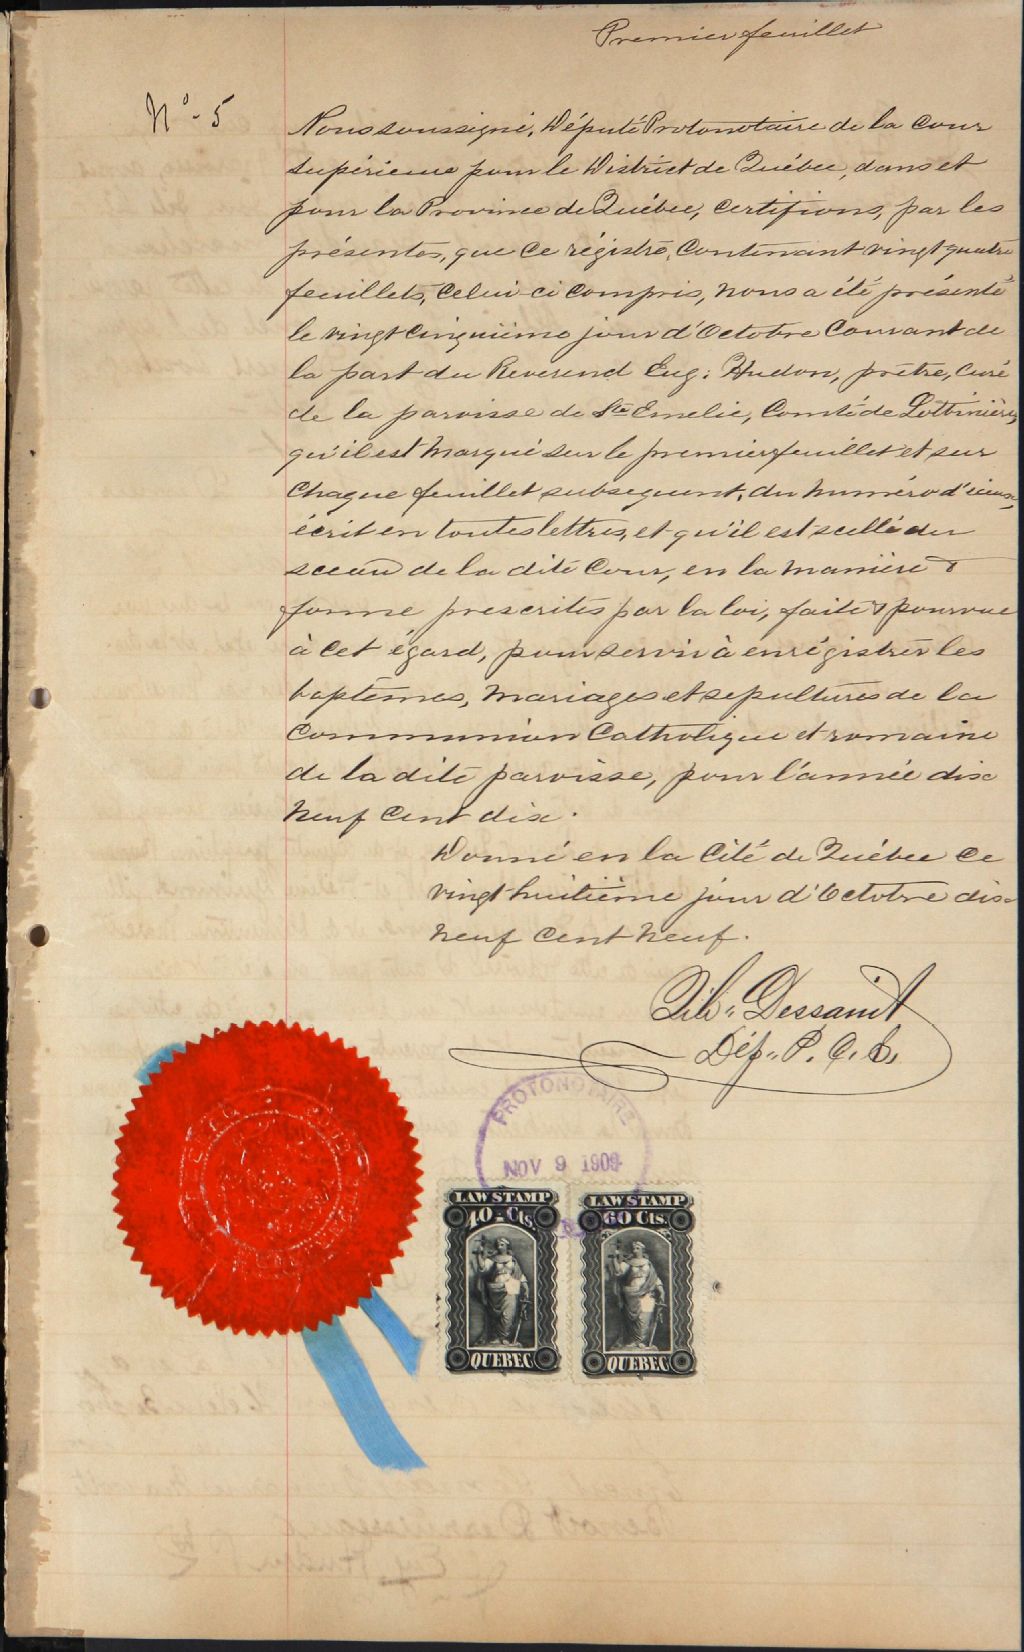 Premier feuillet
No. 5
Nous soussigné, Député Protonotaire de la Cour
Supérieure pour le District de Québec, dans et
pour la Province de Québec, Certifions, par les
présentes, que ce régistre, contenant vingt quatre
feuillets, celui-ci compris, nous a été présenté
le vingt cinquième jour d'Octobre Courant de
la part du Reverend Eug: Hudon, prêtre, Curé
de la paroisse de Ste Emelie, Comté de Lotbinière,
qu'il est marqué sur le premier feuillet et sur
chaque feuillet subsequent, du numéro d'iceux,
écrit en toutes lettres, et qu'il est scellé du
sceau de la dite Cour, en la manière &
forme prescrites par la loi, faite & pourvue
à cet égard, pour servir à enrégistrer les
baptêmes, Mariages et sepultures de la
Communion Catholique et romaine
de la dite paroisse, pour l'année dix
neuf cent dix.
Donné en la Cité de Québec ce
vingt huitième jour d'Octobre dix-
neuf cent neuf.
Dessault
Dép. P. C. S.
PROTONOTAIRE
NOV 9 1909
LAW STAMP
40 Cts
QUEBEC
LAW STAMP
60 Cts.
QUEBEC